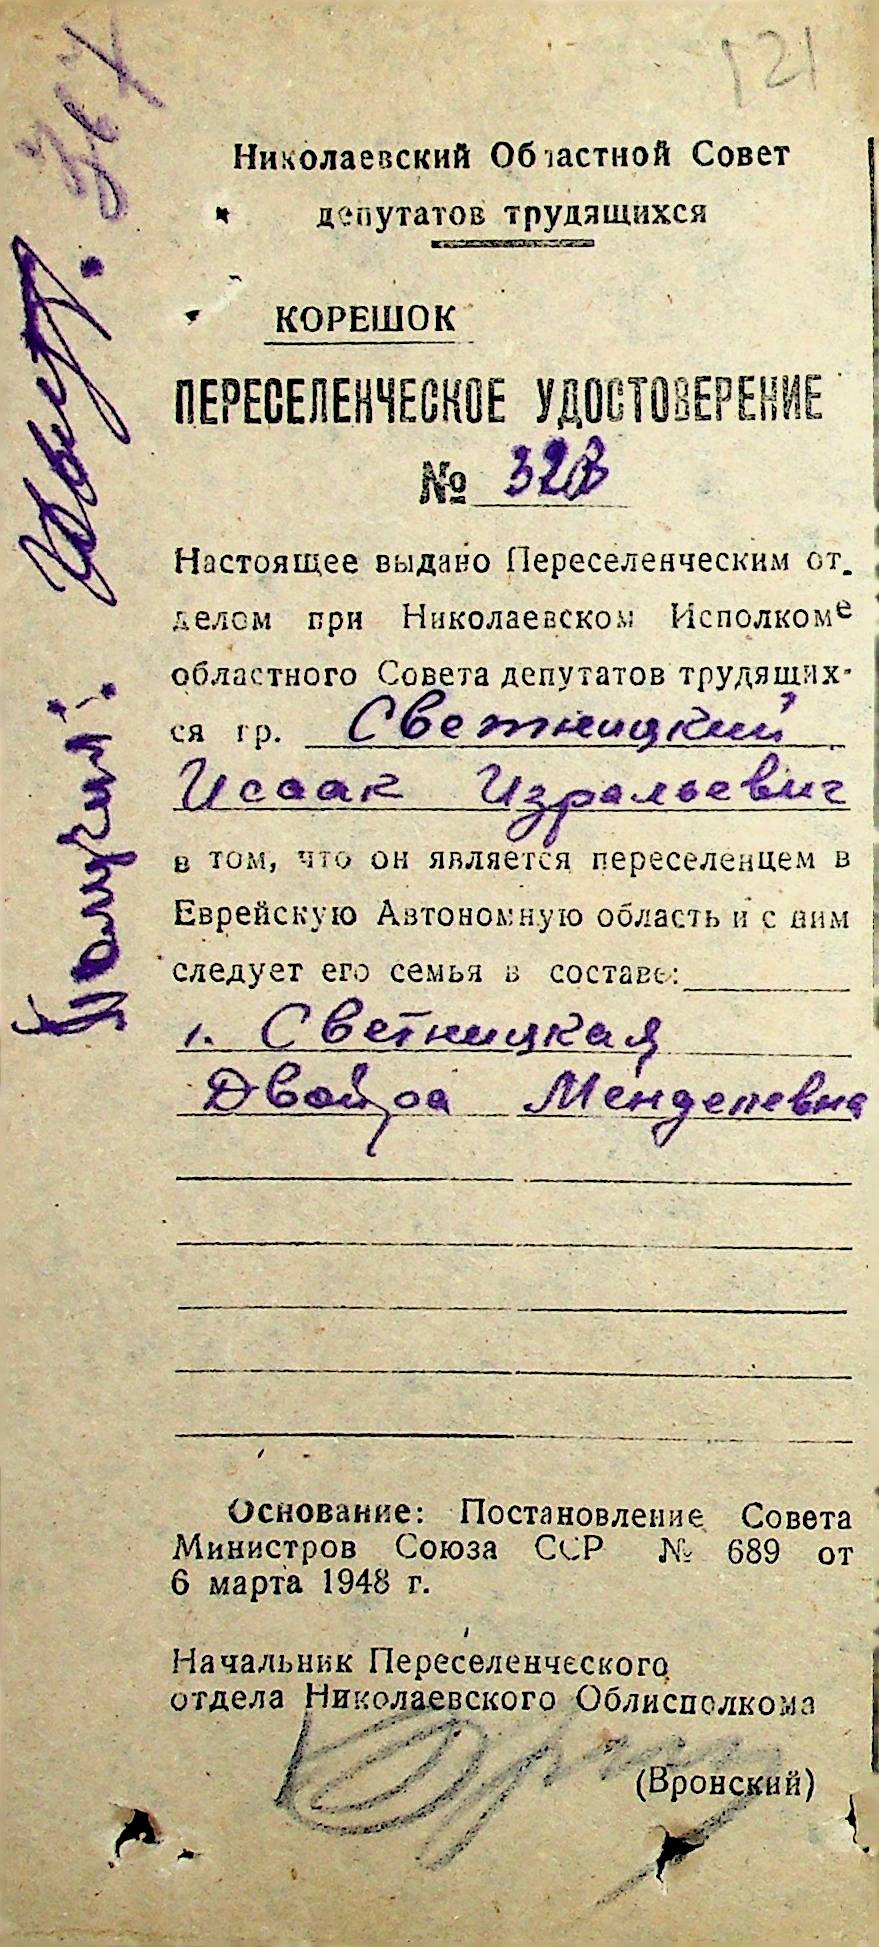 121
Николаевский Областной Совет
депутатов трудящихся
КОРЕШОК
ПЕРЕСЕЛЕНЧЕСКОЕ УДОСТОВЕРЕНИЕ
№ 328
Настоящее выдано Переселенческим от.
делом при Николаевском Исполкоме
областного Совета депутатов трудящих-
ся гр. Светницкий
Исаак Изральевич
в том, что он является переселенцем в
Еврейскую Автономную область и с ним
следует его семья в составе:
1. Светницкая
Двойра Менделевна
Основание: Постановление Совета
Министров Союза ССР № 689 от
6 марта 1948 г.
Начальник Переселенческого
отдела Николаевского Облисполкома
(Вронский)